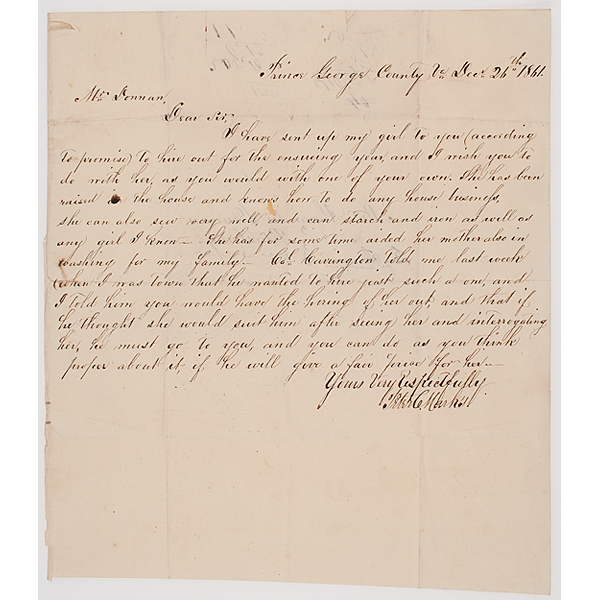 Prince George County Va Decr 26th 1861.
Mr. Donnan,
Dear Sir,
I have sent up my girl to you (according
to promise) to hire out for the ensuing year, and I wish you to
do with her, as you would with one of your own. She has been
raised in the house and knows how to do any house business,
she can also sew very well, and can starch and iron as well as
any girl I know — She has for some time aided her mother also in
washing for my family — Col. Carrington told me last week
(when I was town that he wanted to hire just such a one, and
I told him you would have the hiring of her out, and that if
he thought she would suit him after seeing her and interrogating
her, he must go to you, and you can do as you think
proper about it, if he will give a fair price for her —
Yours Very Respectfully
C Marks